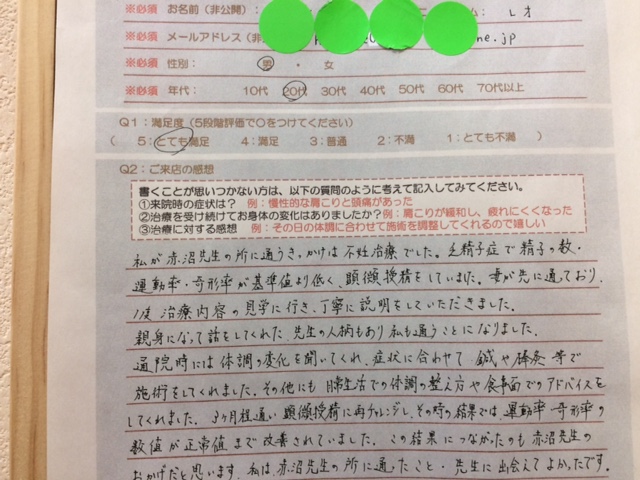 ※必須 お名前（非公開） レオ
※必須 メールアドレス（非 ne.jp
※必須 性別： 男 ・ 女
※必須 年代： 10代 20代 30代 40代 50代 60代 70代以上
Q1：満足度（5段階評価で○をつけてください）
（ 5：とても満足 4：満足 3：普通 2：不満 1：とても不満 ）
Q2：ご来店の感想
書くことが思いつかない方は、以下の質問のように考えて記入してみてください。
①来院時の症状は？ 例：慢性的な肩こりと頭痛があった
②治療を受け続けてお身体の変化はありましたか？ 例：肩こりが緩和し、疲れにくくなった
③治療に対する感想 例：その日の体調に合わせて施術を調整してくれるので嬉しい
私が赤沼先生の所に通うきっかけは不妊治療でした。乏精子症で精子の数・
運動率・奇形率が基準値より低く、顕微授精をしていました。妻が先に通っており、
1度治療内容の見学に行き、丁寧に説明をしていただきました。
親身になって話をしてくれた、先生の人柄もあり私も通うことになりました。
通院時には体調の変化を聞いてくれ、症状に合わせて鍼や棒灸等で
施術をしてくれました。その他にも日常生活での体調の整え方や食事面でのアドバイスを
してくれました。3ヶ月程通い顕微授精に再チャレンジし、その時の結果では、運動率・奇形率の
数値が正常値まで改善されていました。この結果につながったのも赤沼先生の
おかげだと思います。私は、赤沼先生の所に通ったこと・先生に出会えてよかったです。